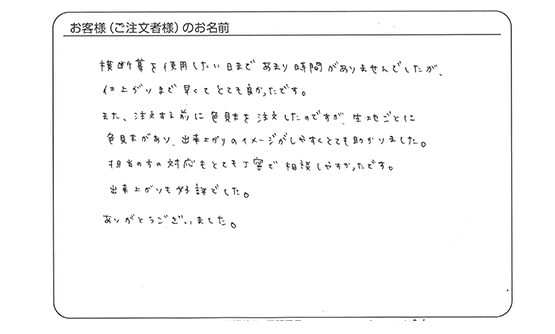 お客様（ご注文者様）のお名前
横断幕を使用したい日まであまり時間がありませんでしたが、
仕上がりまで早くてとても良かったです。
また、注文する前に色見本を注文したのですが、生地ごとに
色見本があり、出来上がりのイメージがしやすくとても助かりました。
担当の方の対応もとても丁寧で相談しやすかったです。
出来上がりも好評でした。
ありがとうございました。